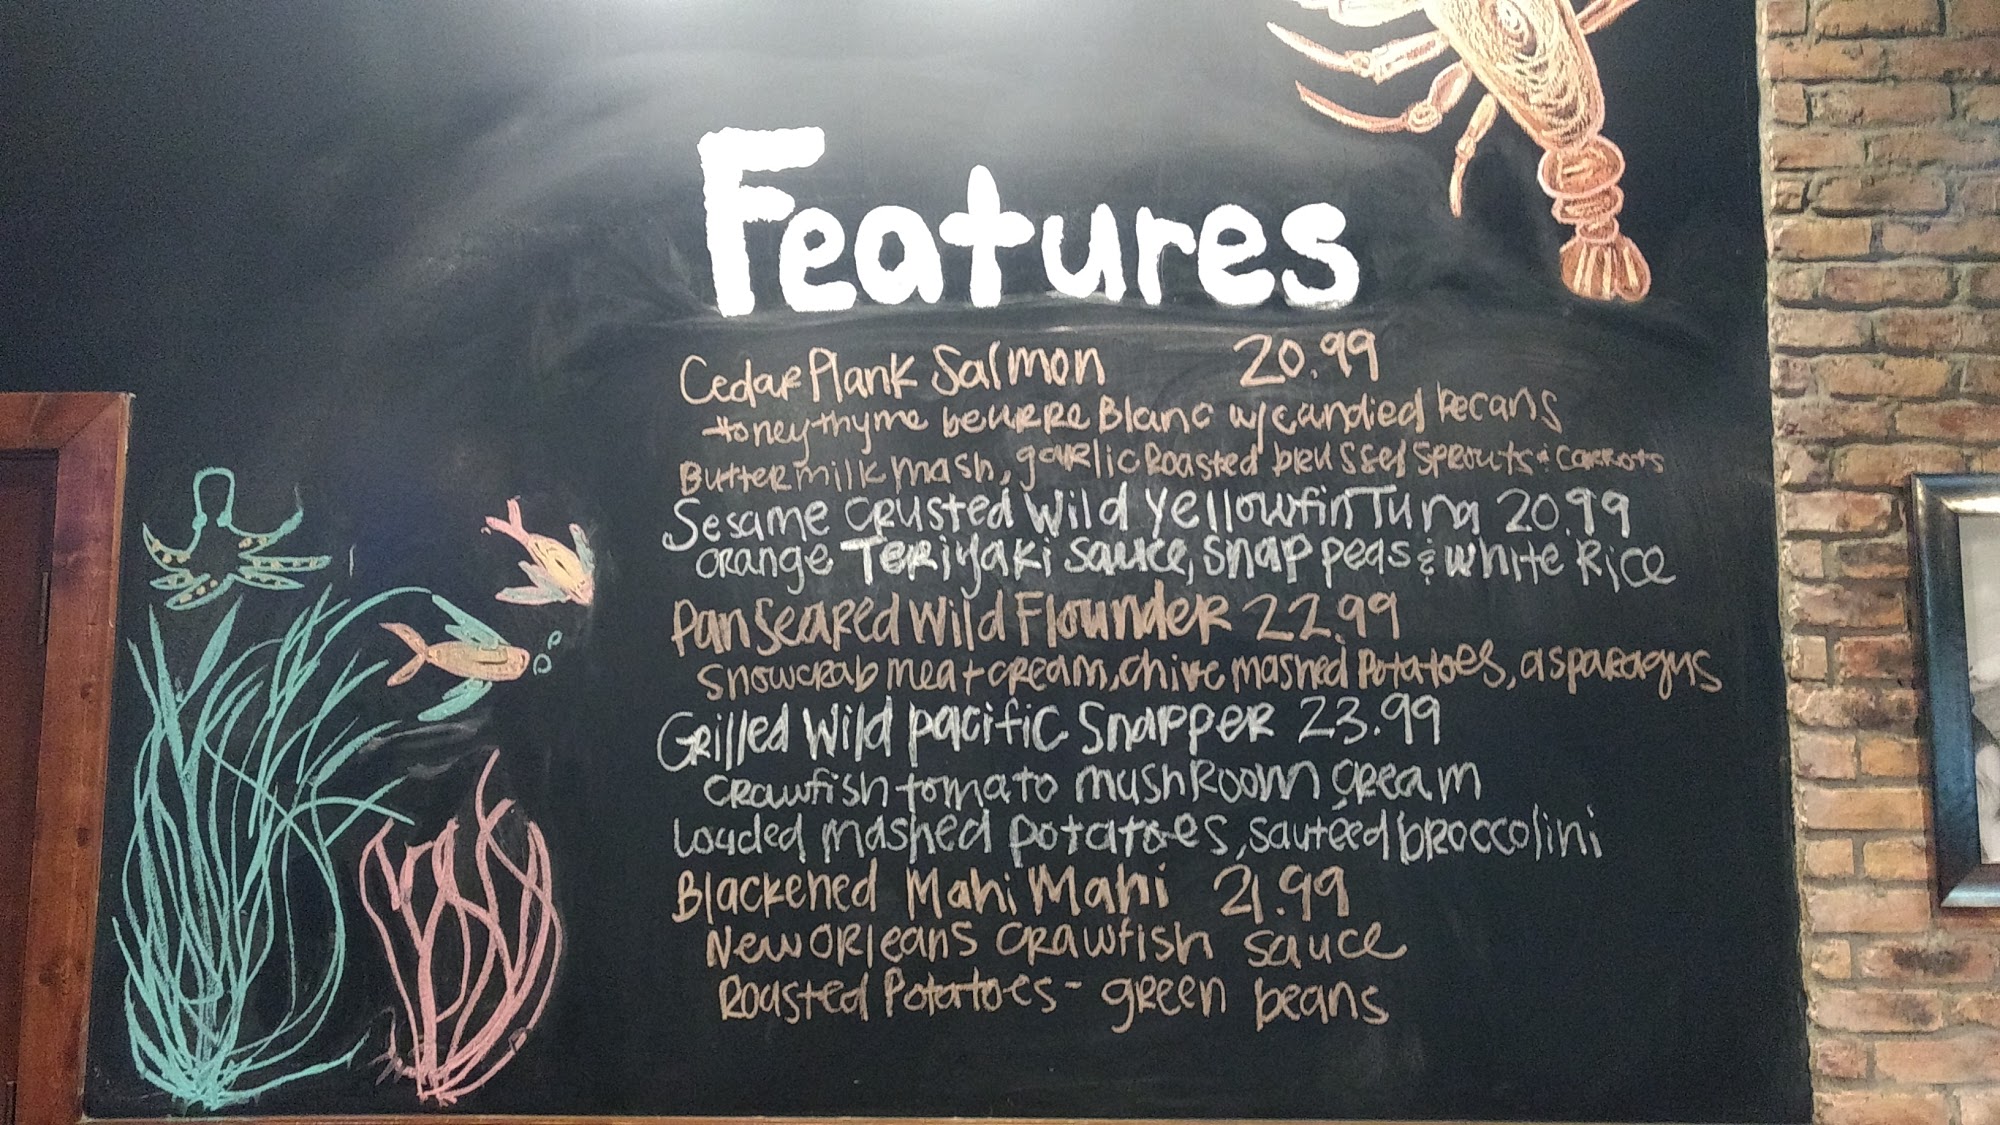 Features
Cedar Plank Salmon 20.99
Honey thyme beurre Blanc w/candied Pecans
Buttermilk mash, garlic Roasted brussel sprouts & carrots
Sesame crusted Wild Yellowfin Tuna 20.99
orange Teriyaki sauce, snap peas & white Rice
Pan Seared Wild Flounder 22.99
snowcrab meat cream, chive mashed Potatoes, asparagus
Grilled Wild pacific Snapper 23.99
crawfish tomato mushroom cream
Loaded mashed potatoes, sauteed broccolini
Blackened Mahi Mahi 21.99
New Orleans crawfish sauce
Roasted Potatoes - green beans